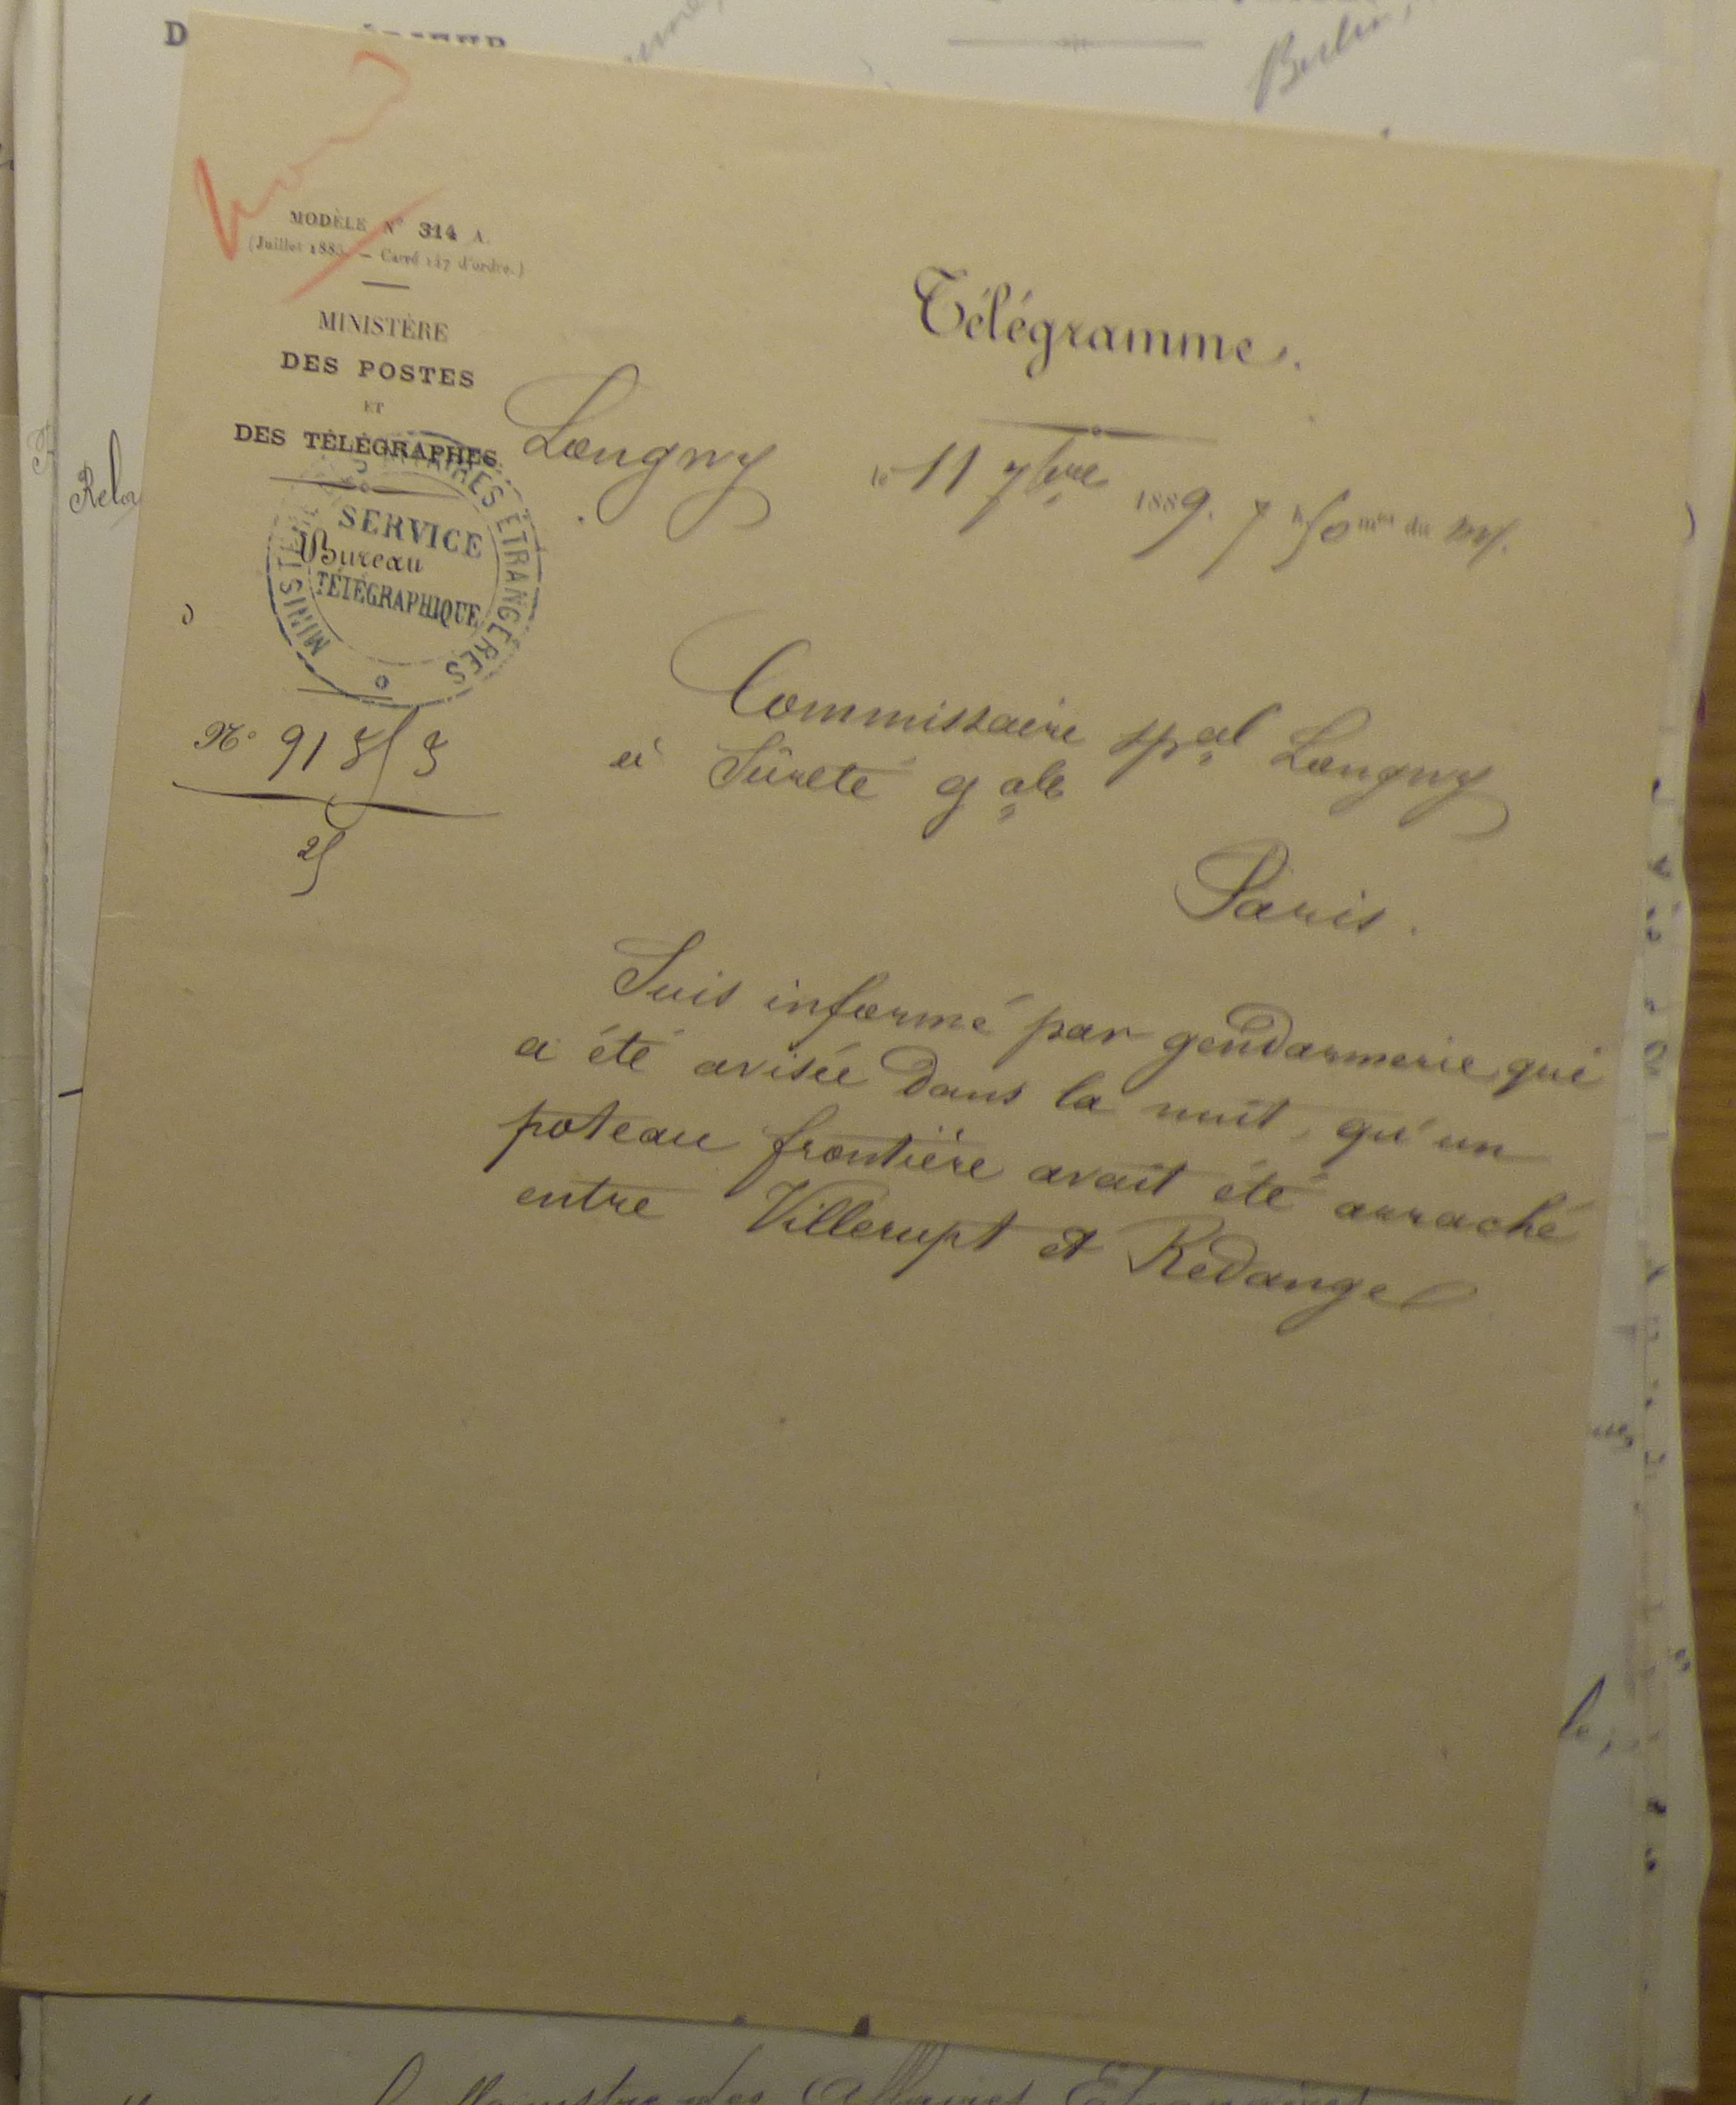 MODÈLE N° 314 A.
(Juillet 1885. — Carré 127 d'ordre.)
MINISTÈRE
DES POSTES
ET
DES TÉLÉGRAPHES
Télégramme.
Longwy
le 11 7bre 1889. 7 h 50 mes du m/.
MINISTÈRE DES AFFAIRES ÉTRANGÈRES
SERVICE
Bureau
TÉLÉGRAPHIQUE
N° 91 5/3
25
Commissaire spal Longwy
à Sûreté gale
Paris.
Suis informé par gendarmerie qui
a été avisée dans la nuit, qu'un
poteau frontière avait été arraché
entre Villerupt et Redange
Berlin,
Rela
le,